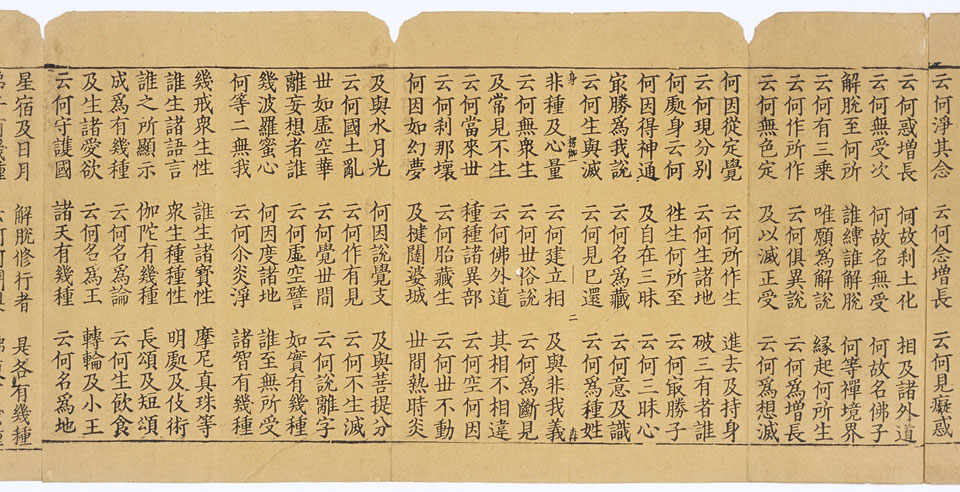 云何淨其念 云何念增長 云何見癡惑
云何惑增長 何故刹土化 相及諸外道
云何無受次 何故名無受 何故名佛子
解脫至何所 誰縛誰解脫 何等禪境界
云何有三乘 唯願為解說 緣起何所生
云何作所作 云何俱異說 云何為增長
云何無色定 及以滅正受 云何為想滅
何因從定覺 云何所作生 進去及持身
云何現分別 云何生諸地 破三有者誰
何處身云何 往生何所至 云何㝡勝子
何因得神通 及自在三昧 云何三昧心
㝡勝為我說 云何名為藏 云何意及識
云何生與滅 云何見已還 云何為種姓
非種及心量 云何建立相 及與非我義
身 二
云何無衆生 云何世俗說 云何為斷見
及常見不生 云何佛外道 其相不相違
云何當來世 種種諸異部 云何空何因
云何刹那壞 云何胎藏生 云何世不動
何因如幻夢 及揵闥婆城 世間熱時炎
及與水月光 何因說覺支 及與菩提分
云何國土亂 云何作有見 云何不生滅
世如虛空華 云何覺世間 云何說離字
離妄想者誰 云何虛空譬 如實有幾種
幾波羅蜜心 何因度諸地 誰至無所受
何等二無我 云何尒炎淨 諸智有幾種
幾戒衆生性 誰生諸寶性 摩尼真珠等
誰生諸語言 衆生種種性 明處及伎術
誰之所顯示 伽陀有幾種 長頌及短頌
成為有幾種 云何名為論 云何生飲食
及生諸愛欲 云何名為王 轉輪及小王
云何守護國 諸天有幾種 云何名為地
星宿及日月 解脫修行者 是各有幾種